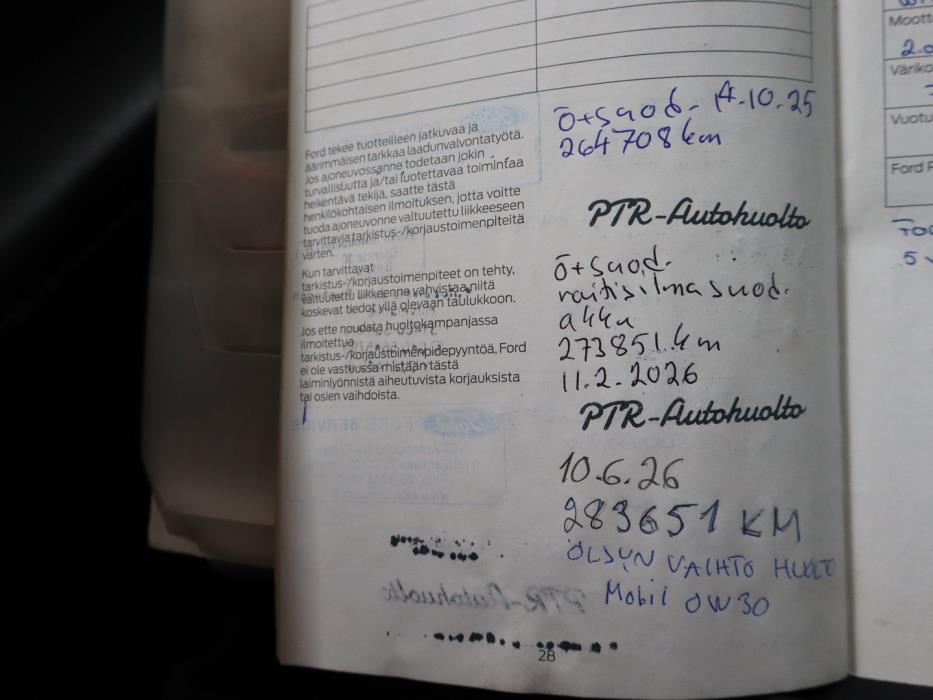 Ford tekee tuotteilleen jatkuvaa ja
äärimmäisen tarkkaa laadunvalvontatyötä.
Jos ajoneuvossanne todetaan jokin
turvallisuutta ja/tai luotettavaa toimintaa
heikentävä tekijä, saatte tästä
henkilökohtaisen ilmoituksen, jotta voitte
tuoda ajoneuvonne valtuutettu liikkeeseen
tarvittavia tarkistus-/korjaustoimenpiteitä
varten.
Kun tarvittavat
tarkistus-/korjaustoimenpiteet on tehty,
valtuutettu liikkeenne vahvistaa niitä
koskevat tiedot yllä olevaan taulukkoon.
Jos ette noudata huoltokampanjassa
ilmoitettua
tarkistus-/korjaustoimenpidepyyntöä, Ford
ei ole vastuussa mistään tästä
laiminlyönnistä aiheutuvista korjauksista
tai osien vaihdoista.
ö+suod. 17.10.25
264708 km
PTR-Autohuolto
ö+suod.
raitisilmasuod.
akku
273851 km
11.2.2026
PTR-Autohuolto
10.6.26
283651 KM
ÖLJYN VAIHTO HUOLTO
Mobil 0W30
28
Moott
2.0
Väriko
Vuotu
Ford P
5 v